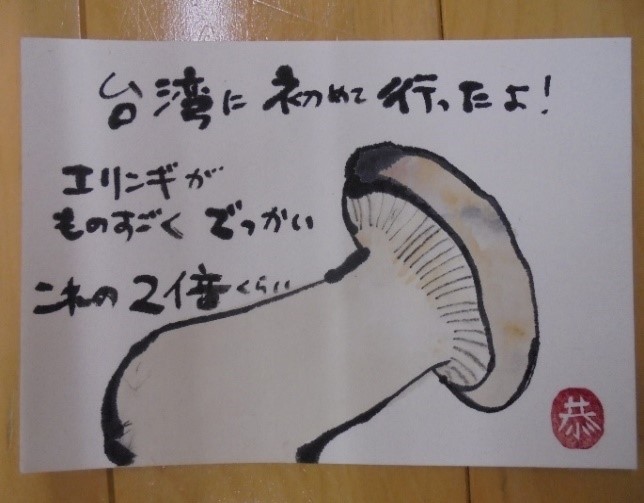 台湾に初めて行ったよ!
エリンギが
ものすごくでっかい
これの2倍くらい
恭